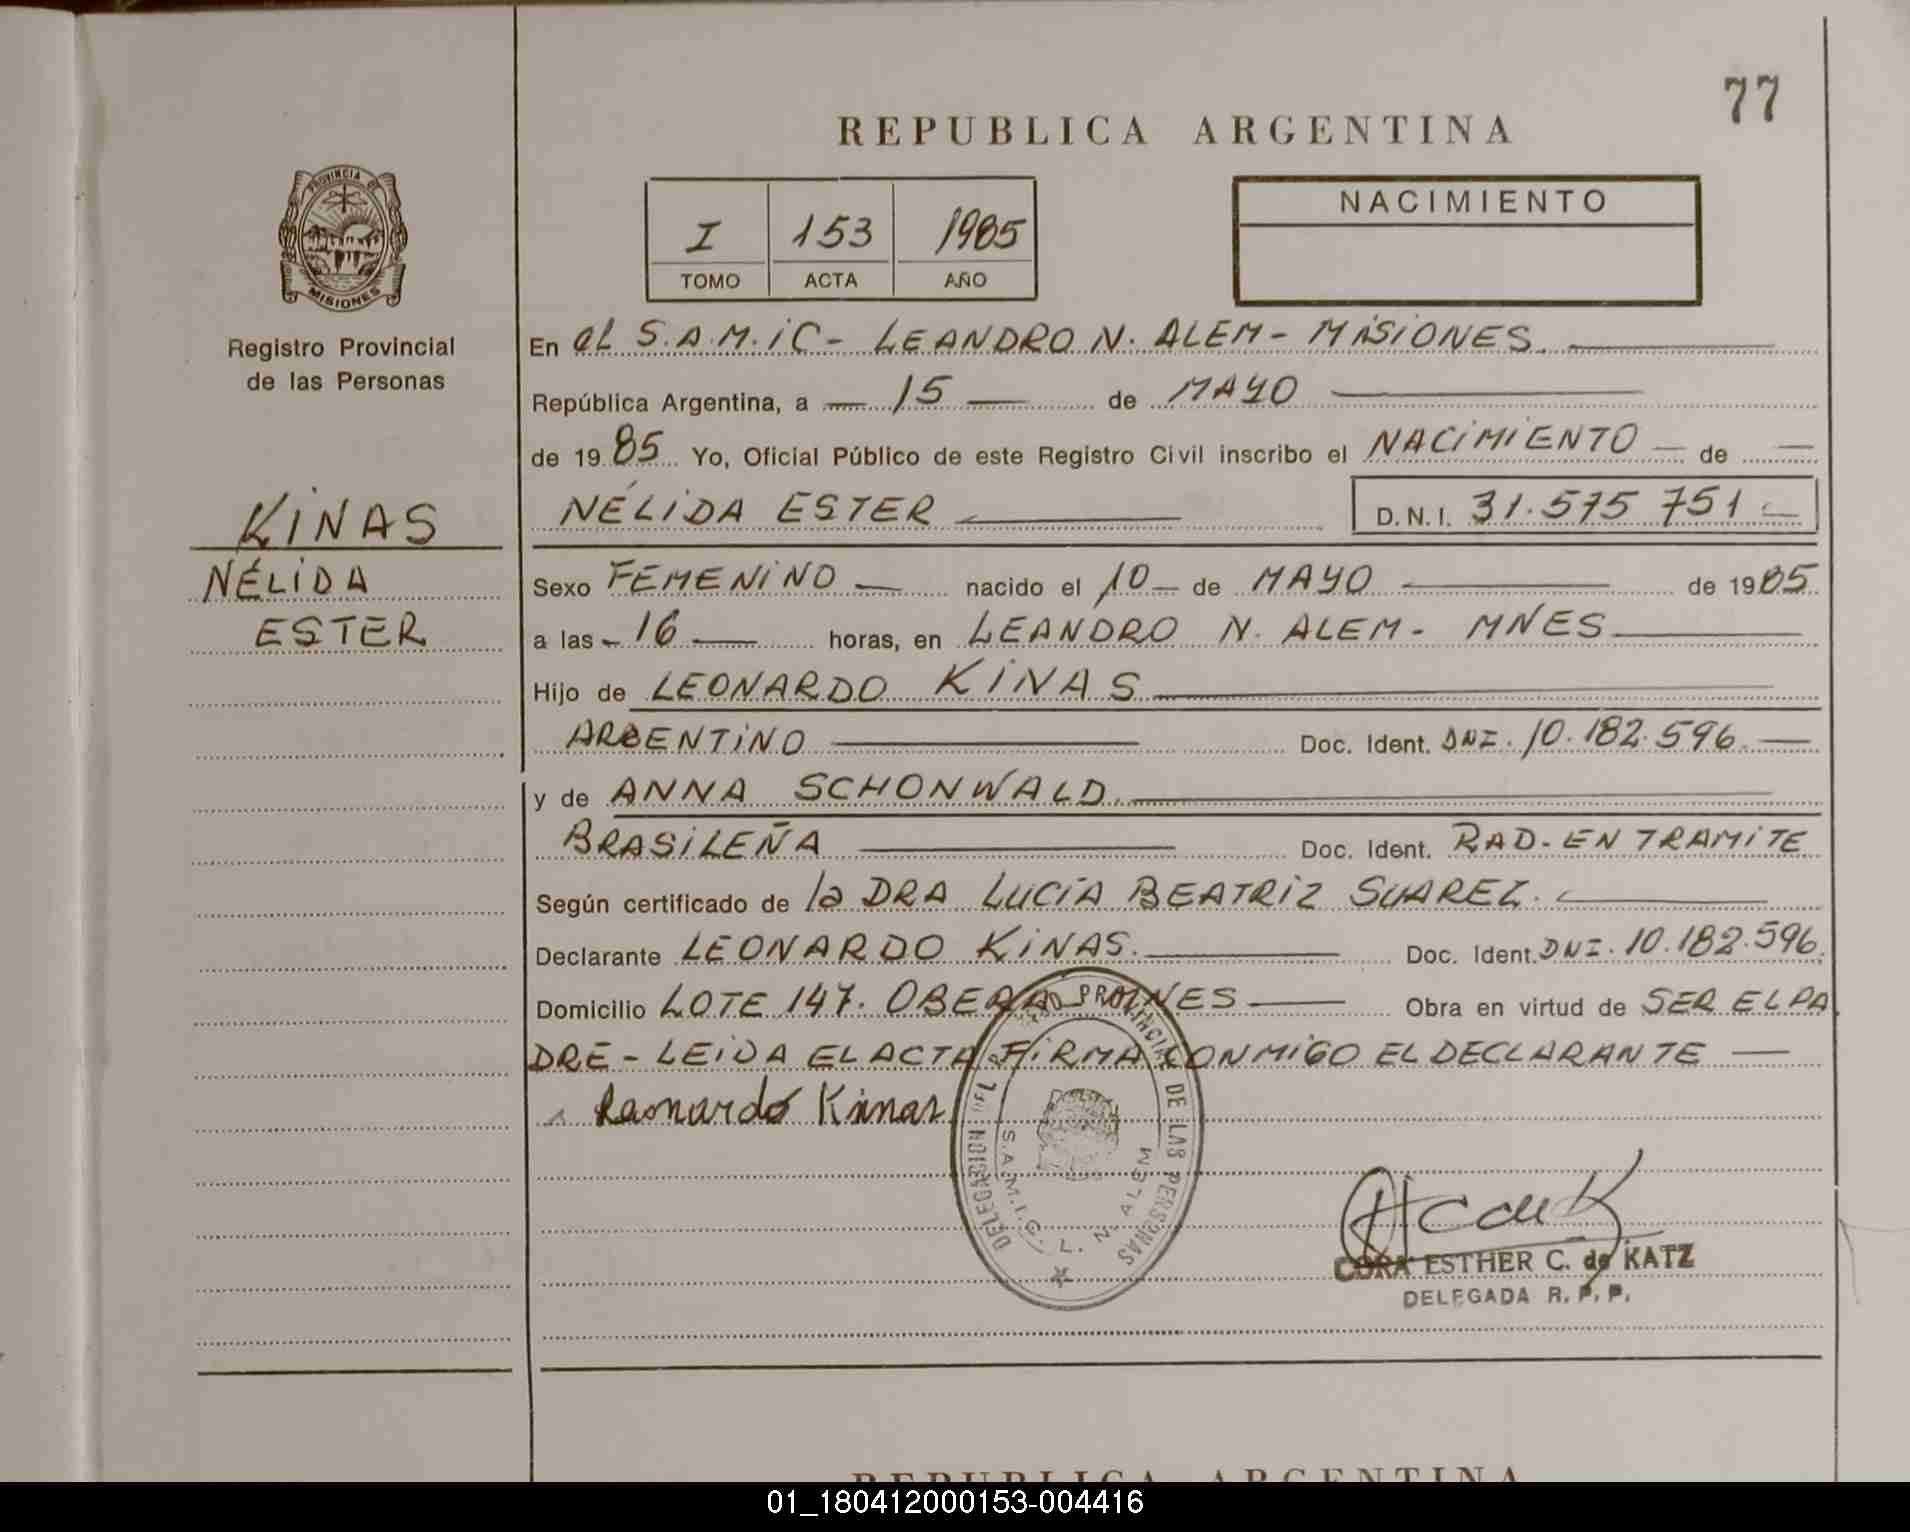 77
REPUBLICA ARGENTINA
PROVINCIA DE
MISIONES
Registro Provincial
de las Personas
KINAS
NÉLIDA
ESTER
I 153 1985
TOMO ACTA AÑO
NACIMIENTO
En el S.A.M.IC - LEANDRO N. ALEM - MISIONES.
República Argentina, a 15 de MAYO
de 19 85 Yo, Oficial Público de este Registro Civil inscribo el NACIMIENTO de
NÉLIDA ESTER D.N.I. 31.575 751
Sexo FEMENINO nacido el 10 de MAYO de 1985
a las 16 horas, en LEANDRO N. ALEM - MNES
Hijo de LEONARDO KINAS
ARGENTINO Doc. Ident. DNI. 10.182.596.
y de ANNA SCHONWALD.
BRASILEÑA Doc. Ident. RAD. EN TRAMITE
Según certificado de la DRA LUCÍA BEATRIZ SUAREZ.
Declarante LEONARDO KINAS. Doc. Ident. DNI. 10.182.596.
Domicilio LOTE 147. OBERA MNES Obra en virtud de SER EL PA
DRE - LEIDA EL ACTA FIRMA CONMIGO EL DECLARANTE
Leonardo Kinas
DELEGACION DEL REGISTRO PROVINCIAL DE LAS PERSONAS
S.A.M.I.C. L. N. ALEM
CORA ESTHER C. de KATZ
DELEGADA R. P. P.
REPUBLICA ARGENTINA
01_180412000153-004416